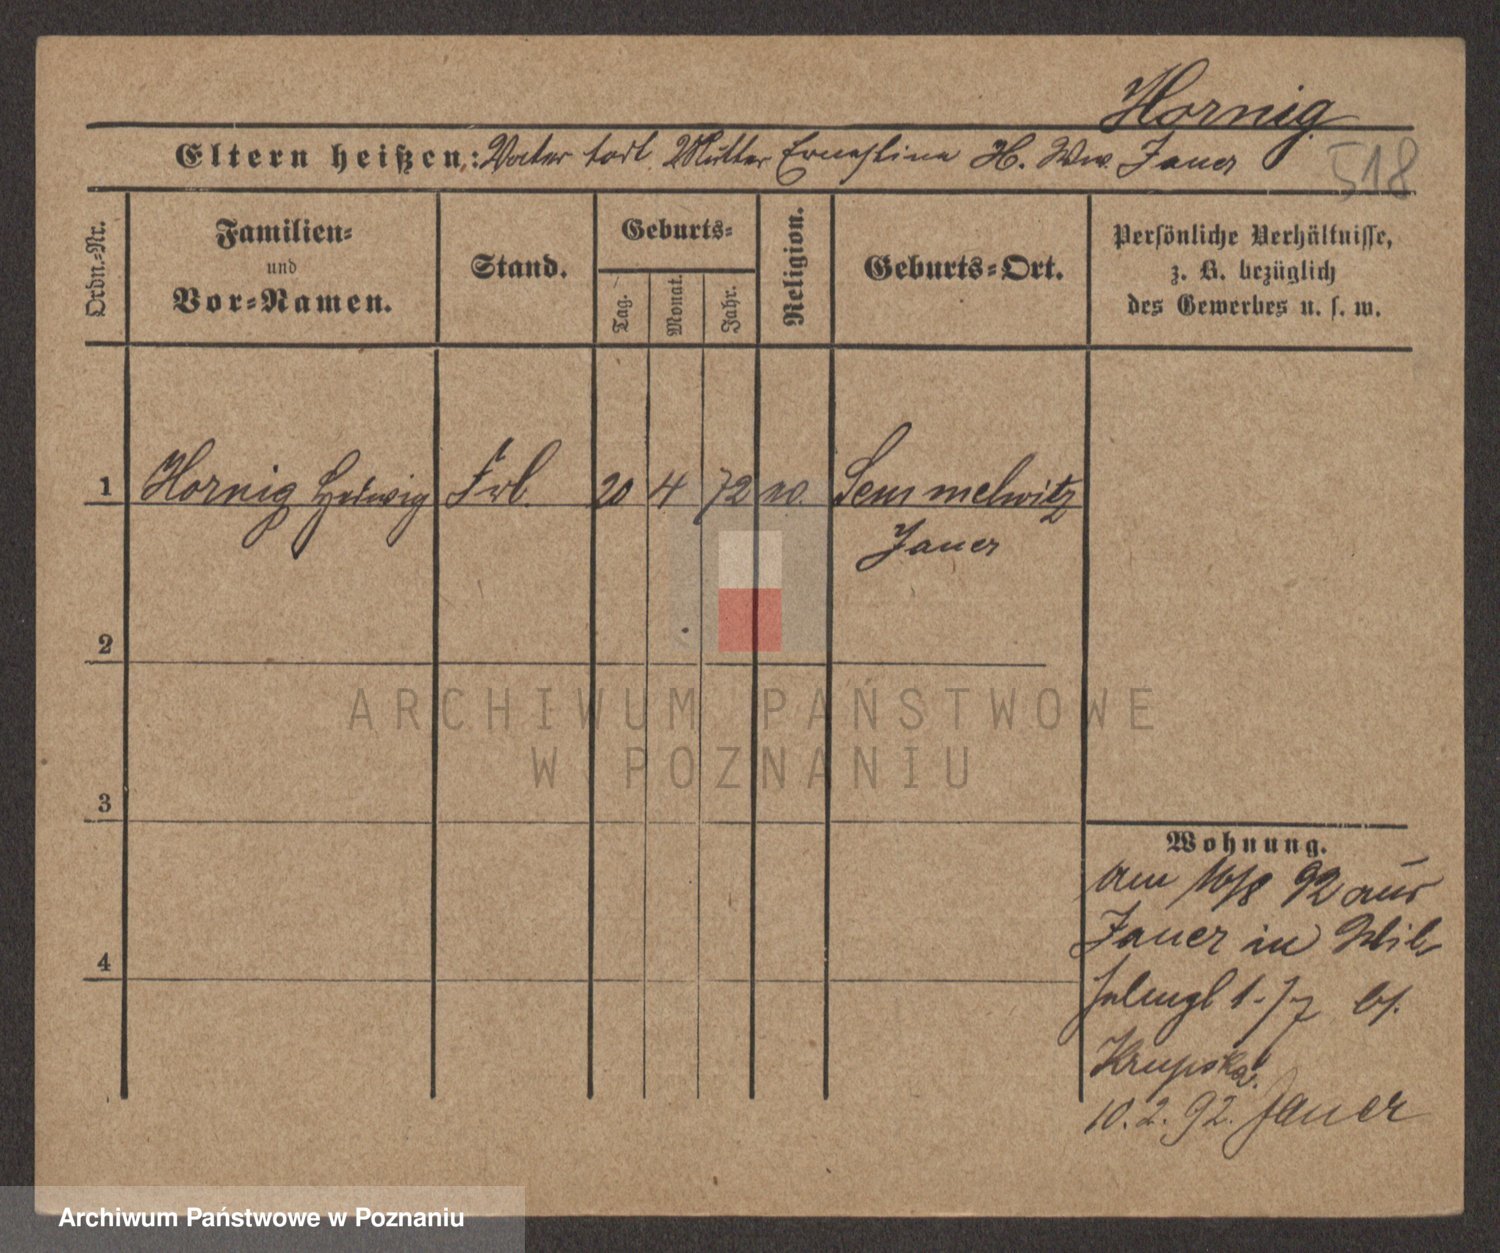 Hornig
Eltern heißen: Vater todt. Mutter Ernestine H. Ww. Jauer
518
Ordn.-Nr.
Familien-
und
Vor-Namen.
Stand.
Geburts-
Tag.
Monat.
Jahr.
Religion.
Geburts-Ort.
Persönliche Verhältnisse,
z. B. bezüglich
des Gewerbes u. s. w.
1 Hornig Hedwig Frl. 20 4 72 Semmelwitz
Jauer
2
3
4
Wohnung.
am 16/8 92 aus
Jauer in
bs.
Krupska.
10.2.92. Jauer
ARCHIWUM PAŃSTWOWE
W POZNANIU
Archiwum Państwowe w Poznaniu